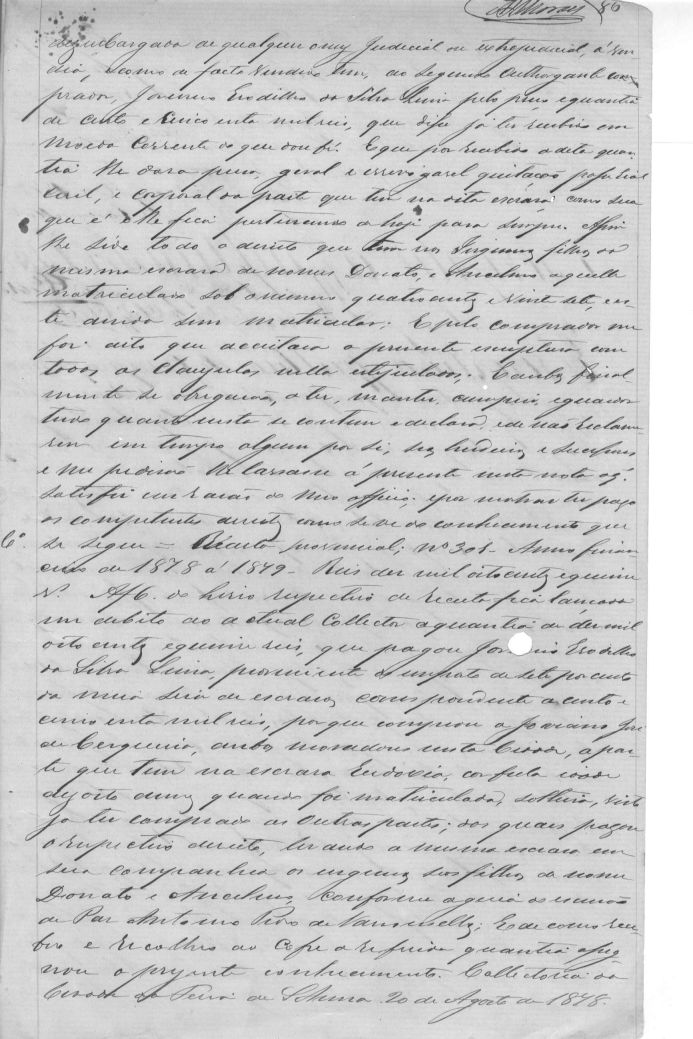 AMoraes 86
desembargada de qualquer onus Judicial ou extrajudicial, á ven
dia, como de facto vendido tem, ao segundo outhorgante com
prador, Jovencio Erodilho da Silva Lima pelo preço e quantia
de cento e cincoenta mil reis, que disse já ter recebido em
moeda corrente do que dou fé. E que por recebida a dita quan
tia lhe dava plena, geral e irrevogavel quitação
civil, e corporal da parte que tem na dita escrava como sua
que é e lhe fica pertencendo de hoje para sempre. Assim
lhe sede todo o direito que tem nos ingenuos filhos da
mesma escrava de nomes Donato, e Ancelmo aquelle
matriculado sob o numero quatrocentos e vinte sete, es-
te ainda sem matricular; E pelo comprador me
foi dito que acceitava a presente escriptura com
todas as clausulas nella estipuladas. E ambos final
mente se obrigarão, a ter, manter, cumprir, e guardar
tudo quanto nesta se contem e declara, e de não reclama-
rem em tempo algum por si, seus herdeiros e sucessores
e me pedirão lhe lavrasse a presente nesta nota q.
satisfiz em razão do meu officio; e por mostrar ter pago
os competentes direitos como se ve do conhecimento que
C.º se segue = Receita provincial; nº 301 - Anno finan
ceiro de 1878 a 1879 - Reis dez mil oitocentos e quinze
N. Af6. do livro respectivo de receita fica lançada
em debito ao actual Collector a quantia de dez mil
oito centos e quinze reis, que pagou Jovencio Erodilho
da Silva Lima, proveniente do imposto de sete por cento
da meia siza de escravos correspondente a cento e
cincoenta mil reis, porque comprou a Joviano José
de Cerqueira, ambos moradores nesta Cidade, a par-
te que tem na escrava Eudoxia, cor fula idade
dezoito annos quando foi matriculada, solteira, visto
já ter comprado as outras partes; dos quais pagou
o respectivo direito, levando a mesma escrava em
sua companhia os ingenuos seos filhos de nome
Donato e Ancelmo, conforme
de Paz Antonio; E de como rece
beo e recolheo ao Cofre a referida quantia assig
nou o presente conhecimento. Collectoria da
Cidade da Feira de S. Anna 20 de Agosto de 1878.